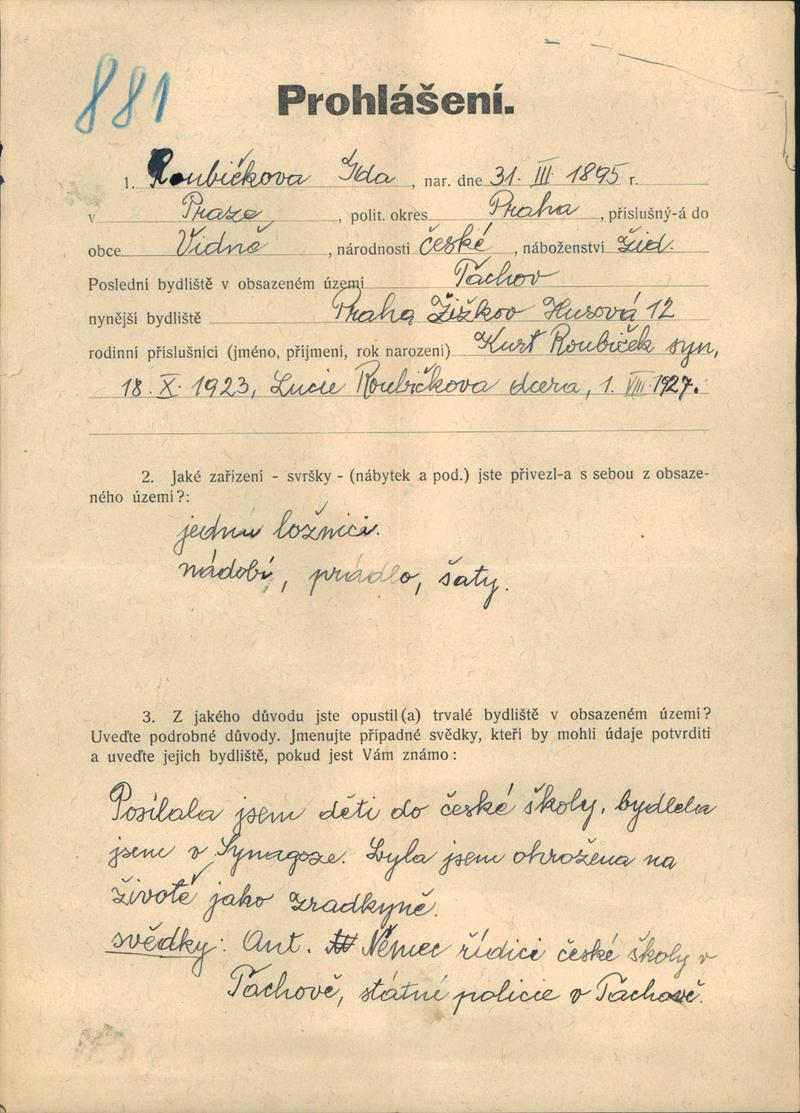 881
Prohlášení.
1. Roubičkova Ida, nar. dne 31. III. 1895 r.
v Praze, polit. okres Praha, příslušný-á do
obce Vidně, národnosti české, náboženství žid.
Poslední bydliště v obsazeném území Tachov
nynější bydliště Praha Žižkov Husová 12
rodinní příslušníci (jméno, příjmení, rok narození) Kurt Roubiček syn,
18. X. 1923, Lucie Roubičkova dcera, 1. VIII. 1927.
2. Jaké zařízení - svršky - (nábytek a pod.) jste přivezl-a s sebou z obsaze-
ného území?:
jednu ložnici.
nádobí, prádlo, šaty.
3. Z jakého důvodu jste opustil(a) trvalé bydliště v obsazeném území?
Uveďte podrobné důvody. Jmenujte případné svědky, kteří by mohli údaje potvrditi
a uveďte jejich bydliště, pokud jest Vám známo:
Posílala jsem děti do české školy, bydlela
jsem v Synagoze. Byla jsem ohrožena na
životě jako zradkyně.
svědky: Ant. Němec řídici české školy v
Tachově, státní policie v Tachově.